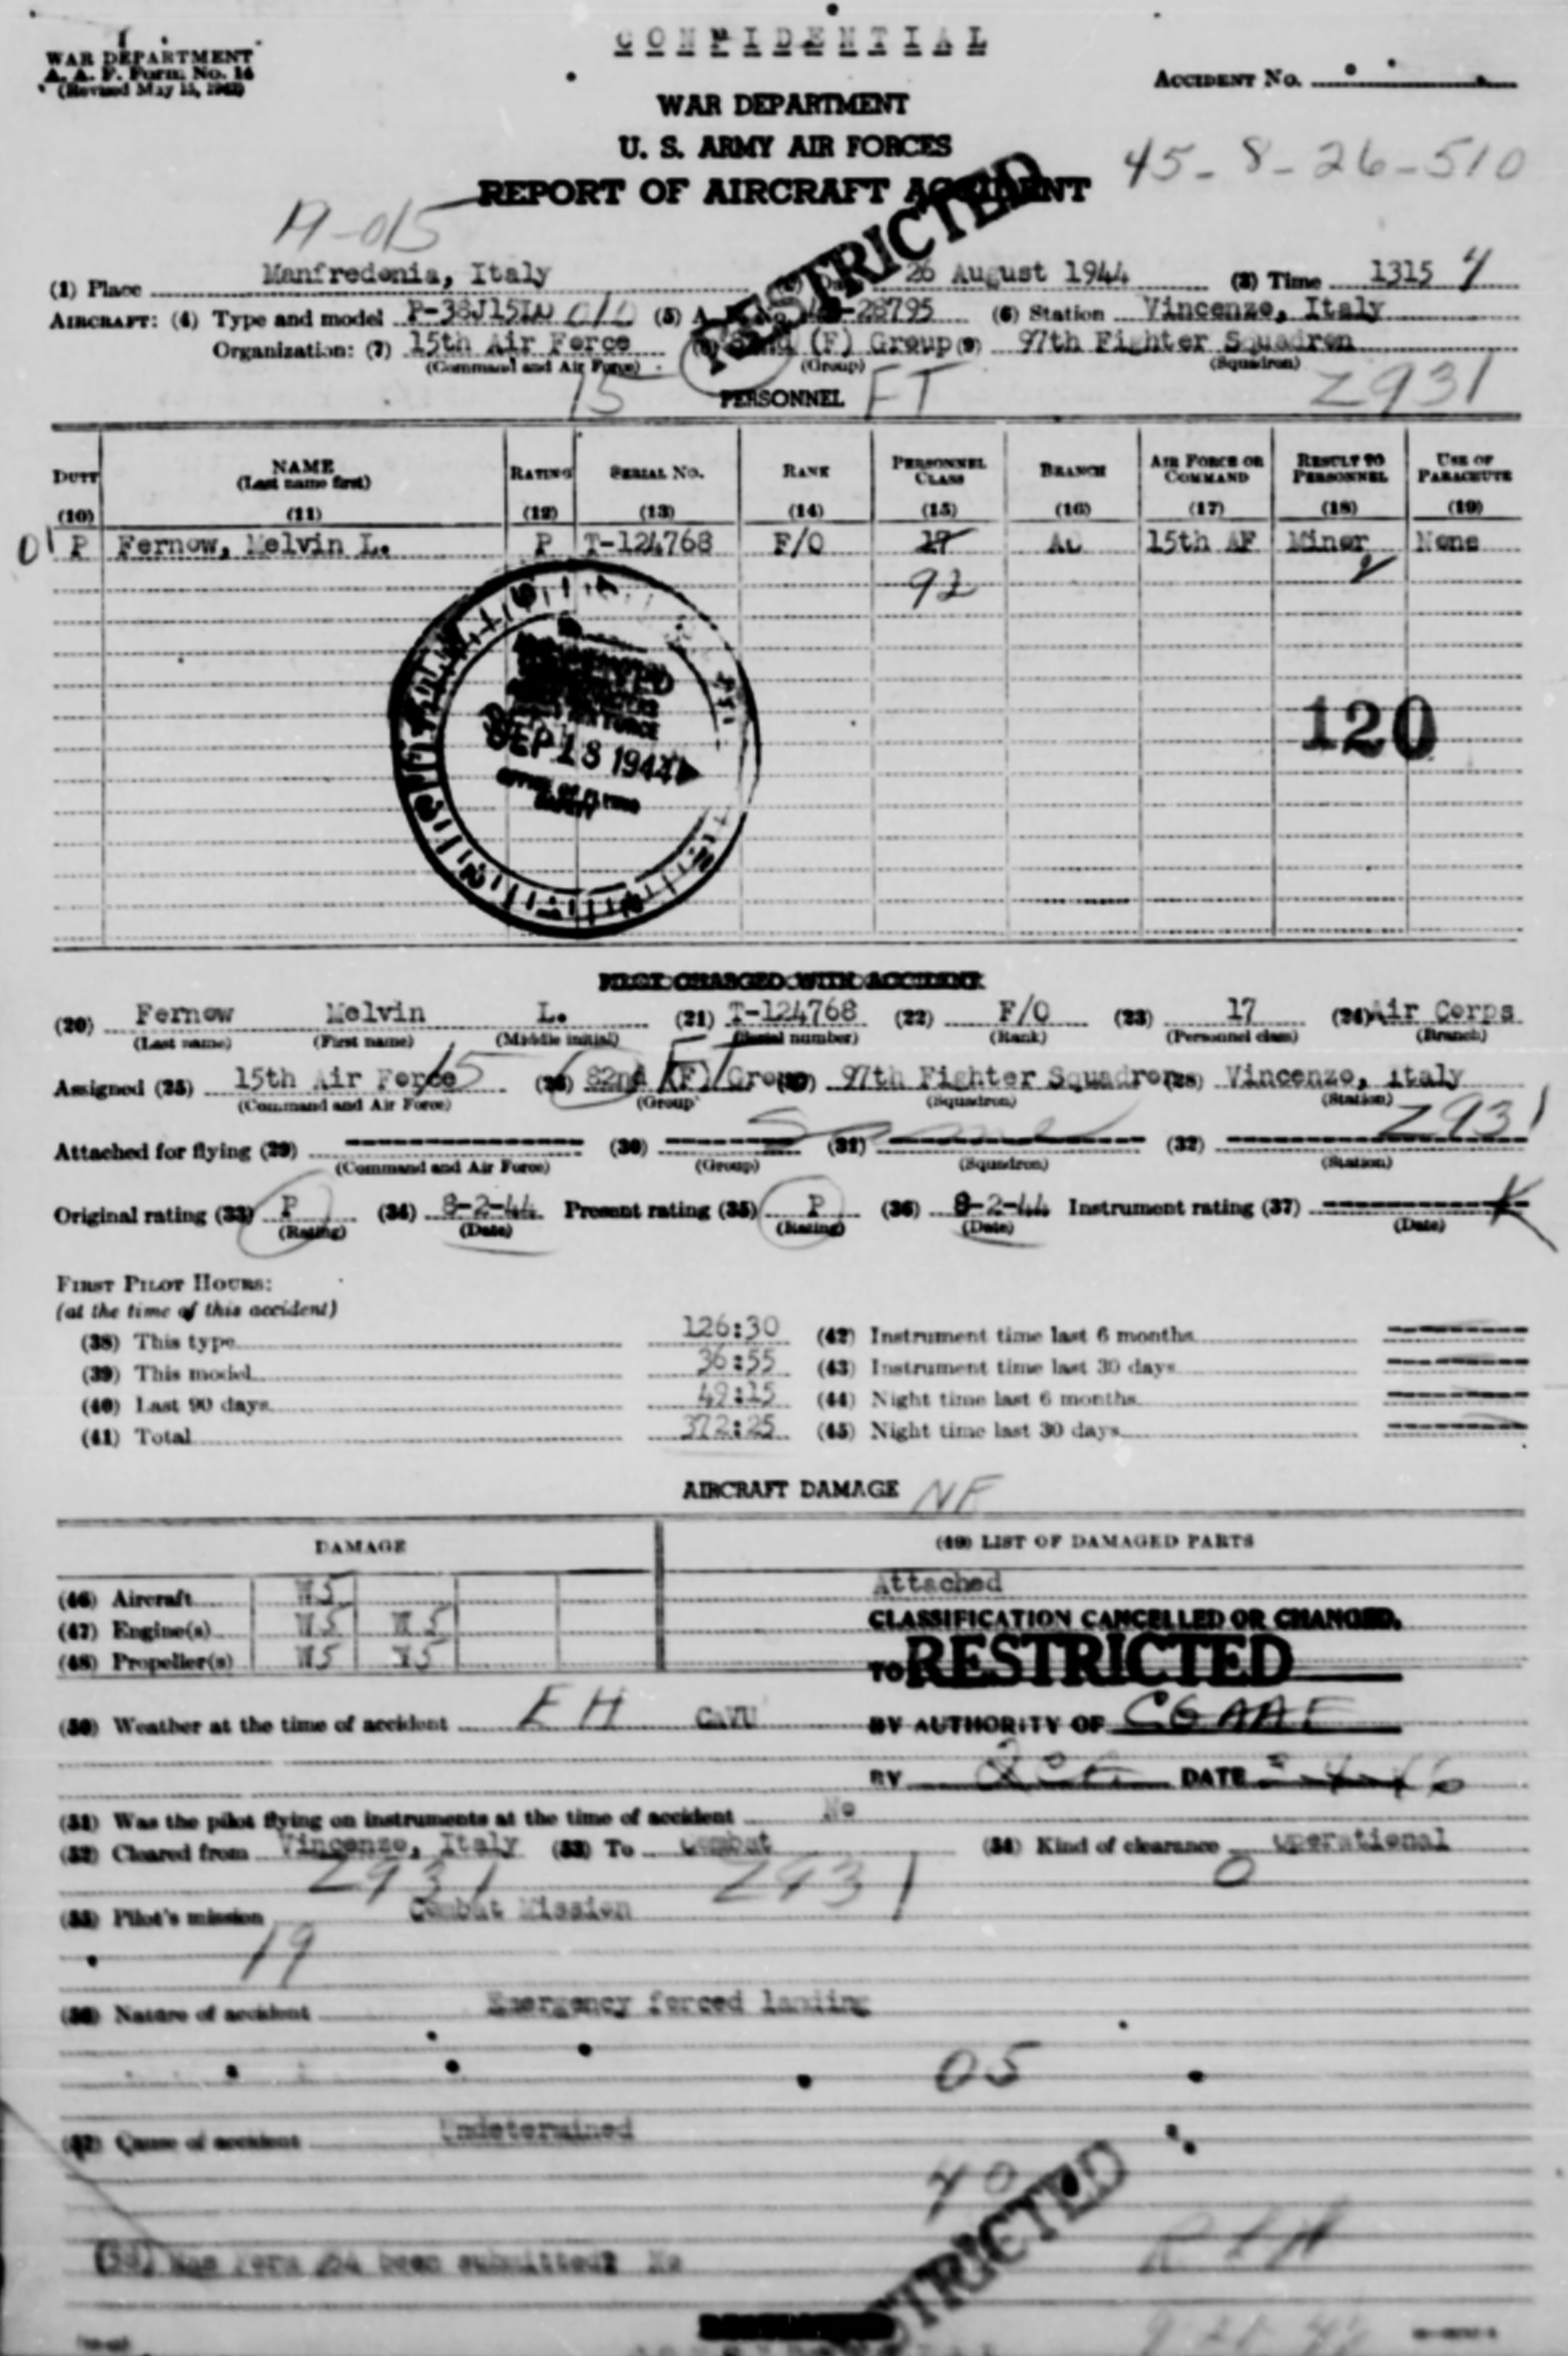 CONFIDENTIAL
WAR DEPARTMENT
A. A. F. Form No. 14
(Revised May 15, 1942)
ACCIDENT No.
WAR DEPARTMENT
U. S. ARMY AIR FORCES
REPORT OF AIRCRAFT ACCIDENT
45-8-26-510
RESTRICTED
A-015
(1) Place Manfredonia, Italy 26 August 1944 (3) Time 1315 4
AIRCRAFT: (4) Type and model P-38J15LO (5) A -28795 (6) Station Vincenzo, Italy
Organization: (7) 15th Air Force 82nd (F) Group (9) 97th Fighter Squadron
(Command and Air Force) (Group) (Squadron)
15 PERSONNEL FT Z931
DUTY NAME (Last name first) RATING SERIAL No. RANK PERSONNEL CLASS BRANCH AIR FORCE OR COMMAND RESULT TO PERSONNEL USE OF PARACHUTE
(10) (11) (12) (13) (14) (15) (16) (17) (18) (19)
01 P Fernow, Melvin L. P T-124768 F/O 17 AC 15th AF Minor None
92
SEP 18 1944
120
PILOT CHARGED WITH ACCIDENT
(20) Fernow Melvin L. (21) T-124768 (22) F/O (23) 17 (24) Air Corps
(Last name) (First name) (Middle initial) (Serial number) (Rank) (Personnel class) (Branch)
Assigned (25) 15th Air Force 15 (26) 82nd (F) Group FT 97th Fighter Squadron (28) Vincenzo, Italy
(Command and Air Force) (Group) (Squadron) (Station)
Same Z931
Attached for flying (29) (30) (31) (32)
(Command and Air Force) (Group) (Squadron) (Station)
Original rating (33) P (34) 8-2-44 Present rating (35) P (36) 8-2-44 Instrument rating (37)
(Rating) (Date) (Rating) (Date) (Date)
FIRST PILOT HOURS:
(at the time of this accident)
(38) This type 126:30 (42) Instrument time last 6 months
(39) This model 36:55 (43) Instrument time last 30 days
(40) Last 90 days 49:15 (44) Night time last 6 months
(41) Total 372:25 (45) Night time last 30 days
AIRCRAFT DAMAGE NF
DAMAGE (49) LIST OF DAMAGED PARTS
(46) Aircraft W5 Attached
(47) Engine(s) W5 W5 CLASSIFICATION CANCELLED OR CHANGED,
(48) Propeller(s) W5 W5 TO RESTRICTED
(50) Weather at the time of accident CAVU BY AUTHORITY OF CGAAF
BY DATE
(51) Was the pilot flying on instruments at the time of accident No
(52) Cleared from Vincenzo, Italy (53) To Combat (54) Kind of clearance Operational
Z931 Z931 0
(55) Pilot's mission Combat Mission
19
(56) Nature of accident Emergency forced landing
05
(57) Cause of accident Undetermined
RESTRICTED
(58) Has Form 54 been submitted? No